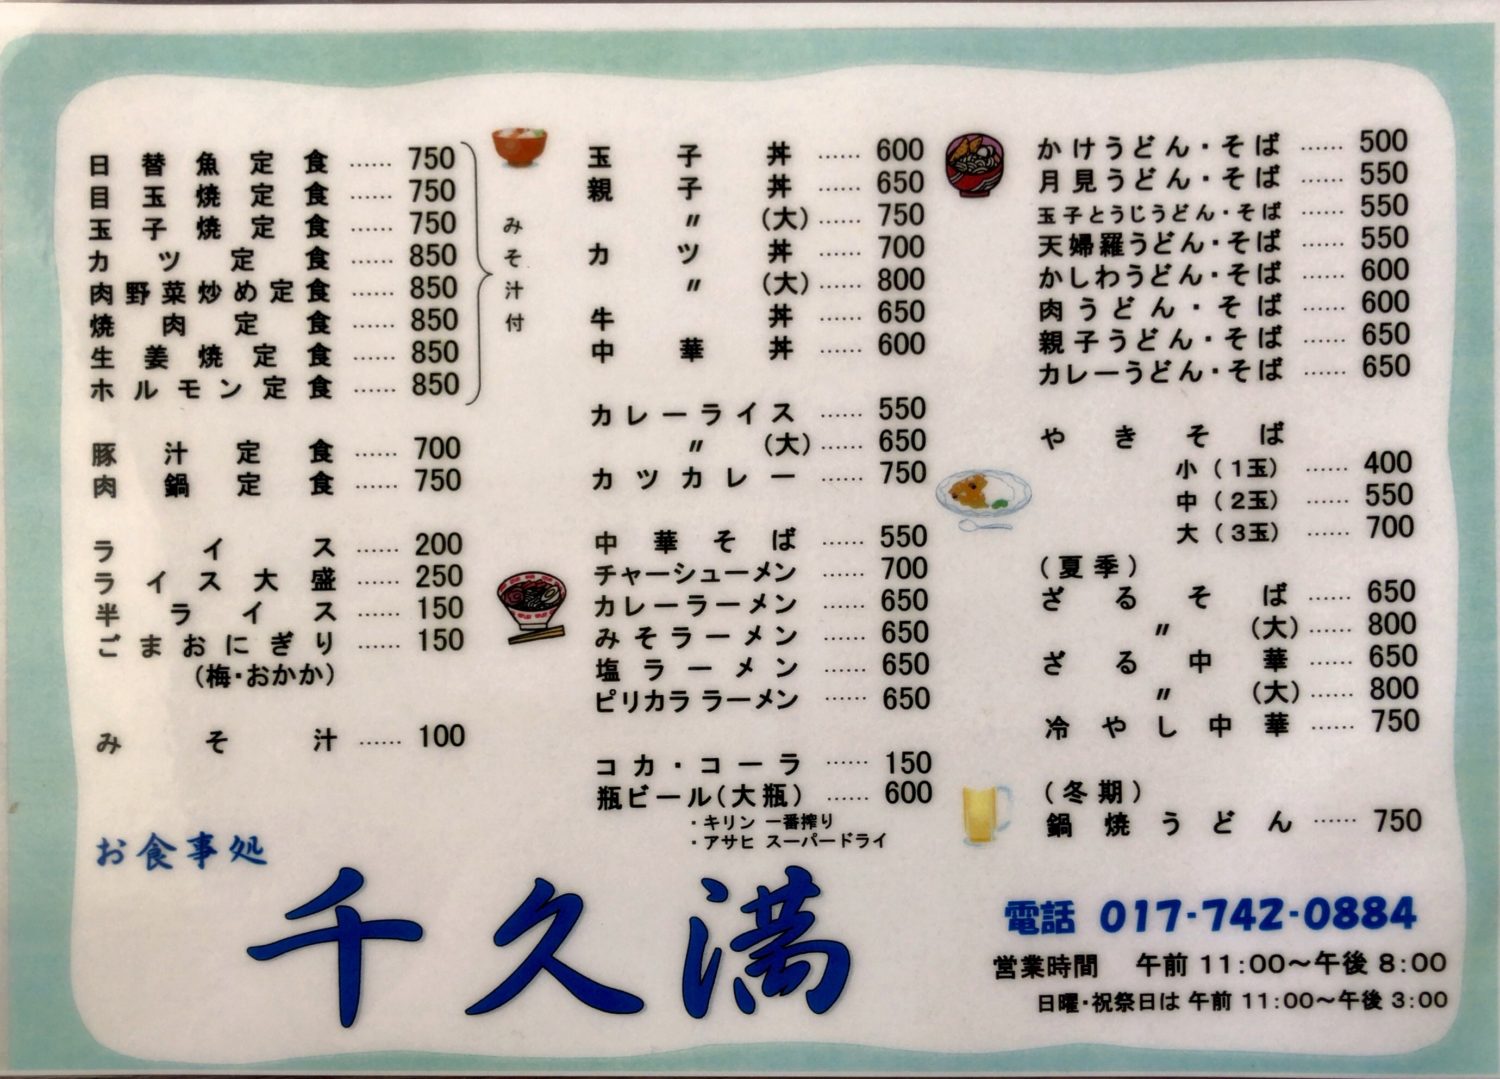 日替魚定食 …… 750
目玉焼定食 …… 750
玉子焼定食 …… 750
カツ定食 …… 850
肉野菜炒め定食 …… 850
焼肉定食 …… 850
生姜焼定食 …… 850
ホルモン定食 …… 850
みそ汁付
豚汁定食 …… 700
肉鍋定食 …… 750
ライス …… 200
ライス大盛 …… 250
半ライス …… 150
ごまおにぎり …… 150
(梅・おかか)
みそ汁 …… 100
玉子丼 …… 600
親子丼 …… 650
〃 (大) …… 750
カツ丼 …… 700
〃 (大) …… 800
牛丼 …… 650
中華丼 …… 600
カレーライス …… 550
〃 (大) …… 650
カツカレー …… 750
中華そば …… 550
チャーシューメン …… 700
カレーラーメン …… 650
みそラーメン …… 650
塩ラーメン …… 650
ピリカララーメン …… 650
コカ・コーラ …… 150
瓶ビール(大瓶) …… 600
・キリン 一番搾り
・アサヒ スーパードライ
かけうどん・そば …… 500
月見うどん・そば …… 550
玉子とうじうどん・そば …… 550
天婦羅うどん・そば …… 550
かしわうどん・そば …… 600
肉うどん・そば …… 600
親子うどん・そば …… 650
カレーうどん・そば …… 650
やきそば
小(1玉) …… 400
中(2玉) …… 550
大(3玉) …… 700
(夏季)
ざるそば …… 650
〃 (大) …… 800
ざる中華 …… 650
〃 (大) …… 800
冷やし中華 …… 750
(冬期)
鍋焼うどん …… 750
お食事処
千久満
電話 017-742-0884
営業時間 午前 11:00～午後 8:00
日曜・祝祭日は 午前 11:00～午後 3:00